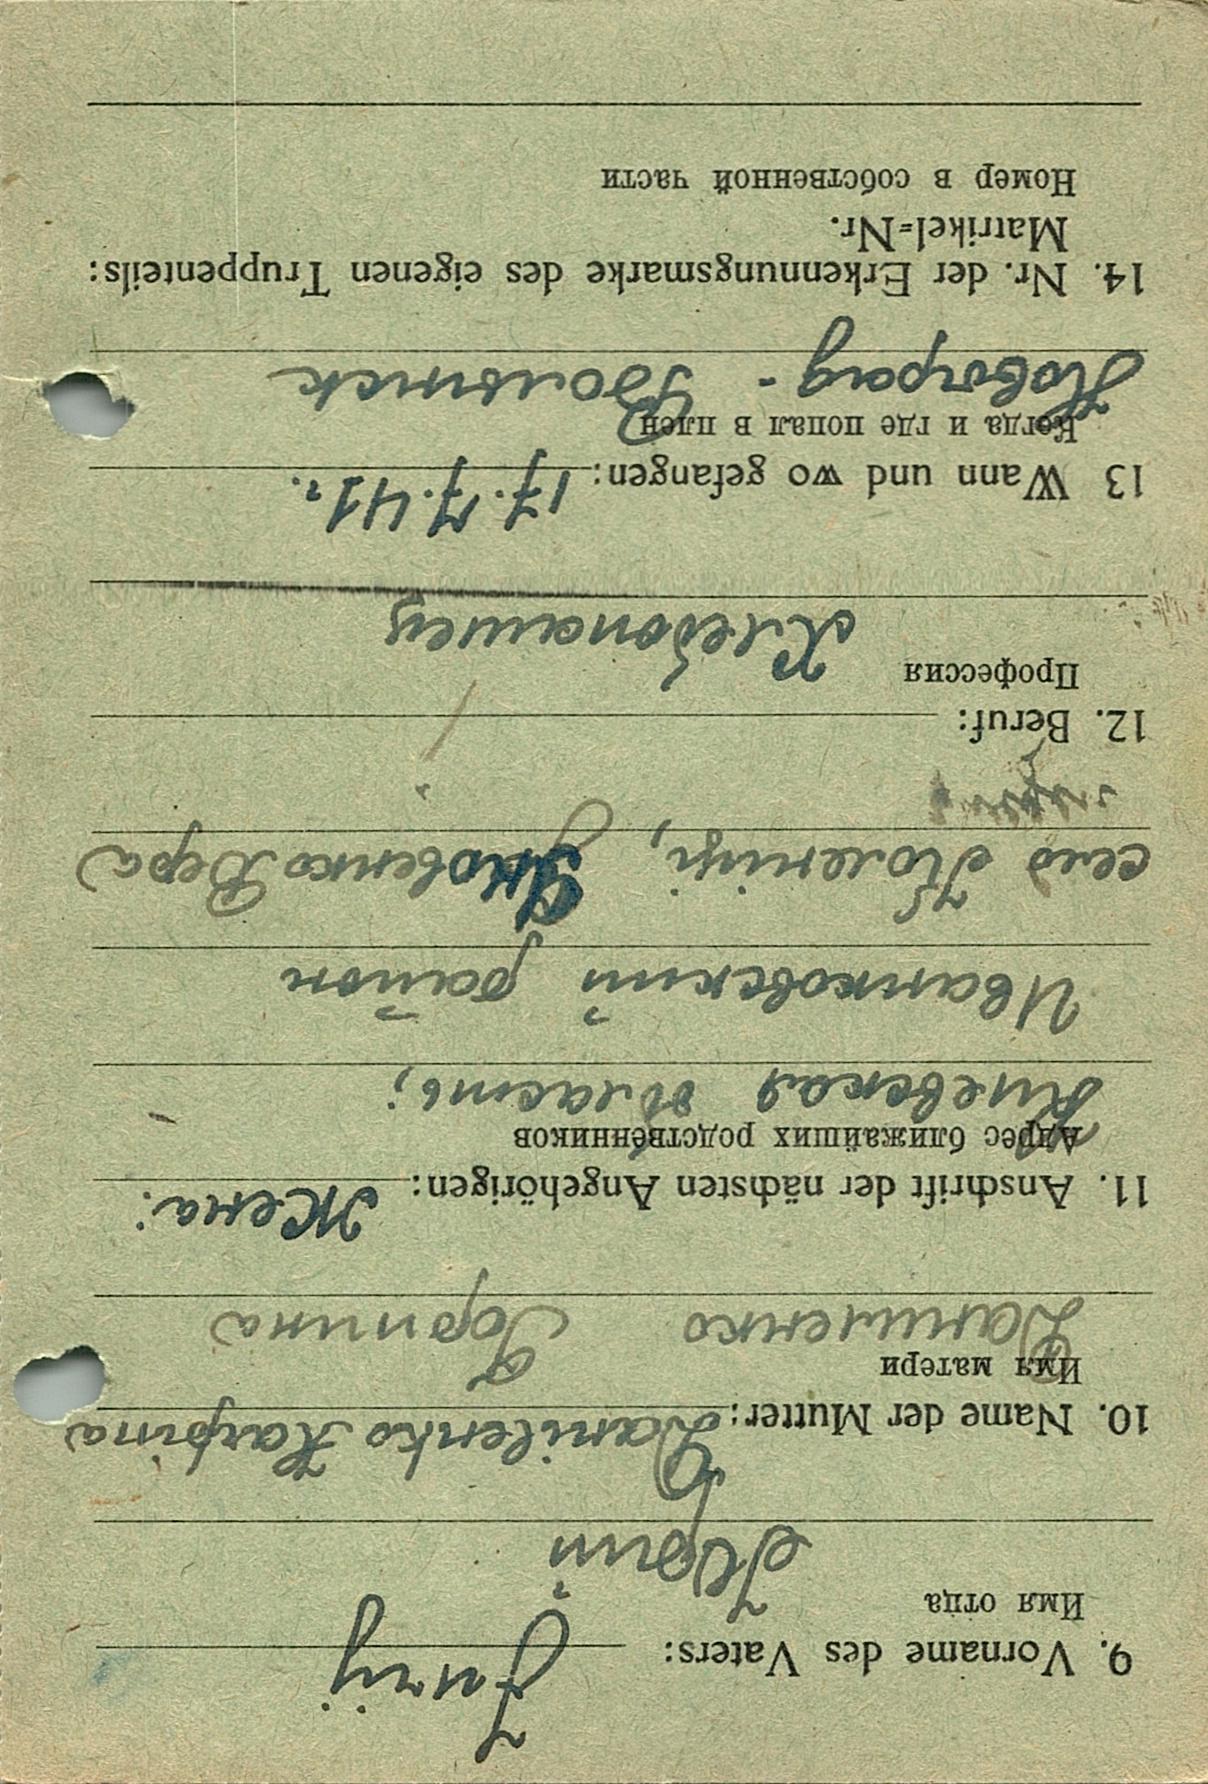 9. Vorname des Vaters: Jurij
Имя отца
Юрий
10. Name der Mutter: Danilenko Harpina
Имя матери
Даниленко Горпина
11. Anschrift der nächsten Angehörigen: Жена:
Адрес ближайших родственников
Киевская область,
Иванковский район
село Коленци, Яковенко Вера
12. Beruf:
Профессия
Хлебопашец
13 Wann und wo gefangen: 17.7.41 г.
Когда и где попал в плен
Новоград - Волынск
14. Nr. der Erkennungsmarke des eigenen Truppenteils:
Matrikel=Nr.
Номер в собственной части